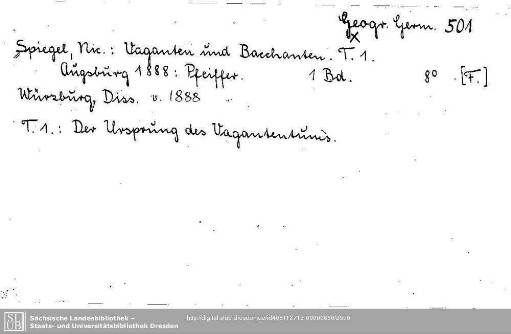 Geogr. Germ. 501
x
Spiegel, Nic.: Vaganten und Bacchanten. T. 1.
Augsburg 1888: Pfeiffer. 1 Bd. 8° [F.]
Würzburg, Diss. v. 1888
T. 1.: Der Ursprung des Vagantentums.
SLUB
Sächsische Landesbibliothek –
Staats- und Universitätsbibliothek Dresden